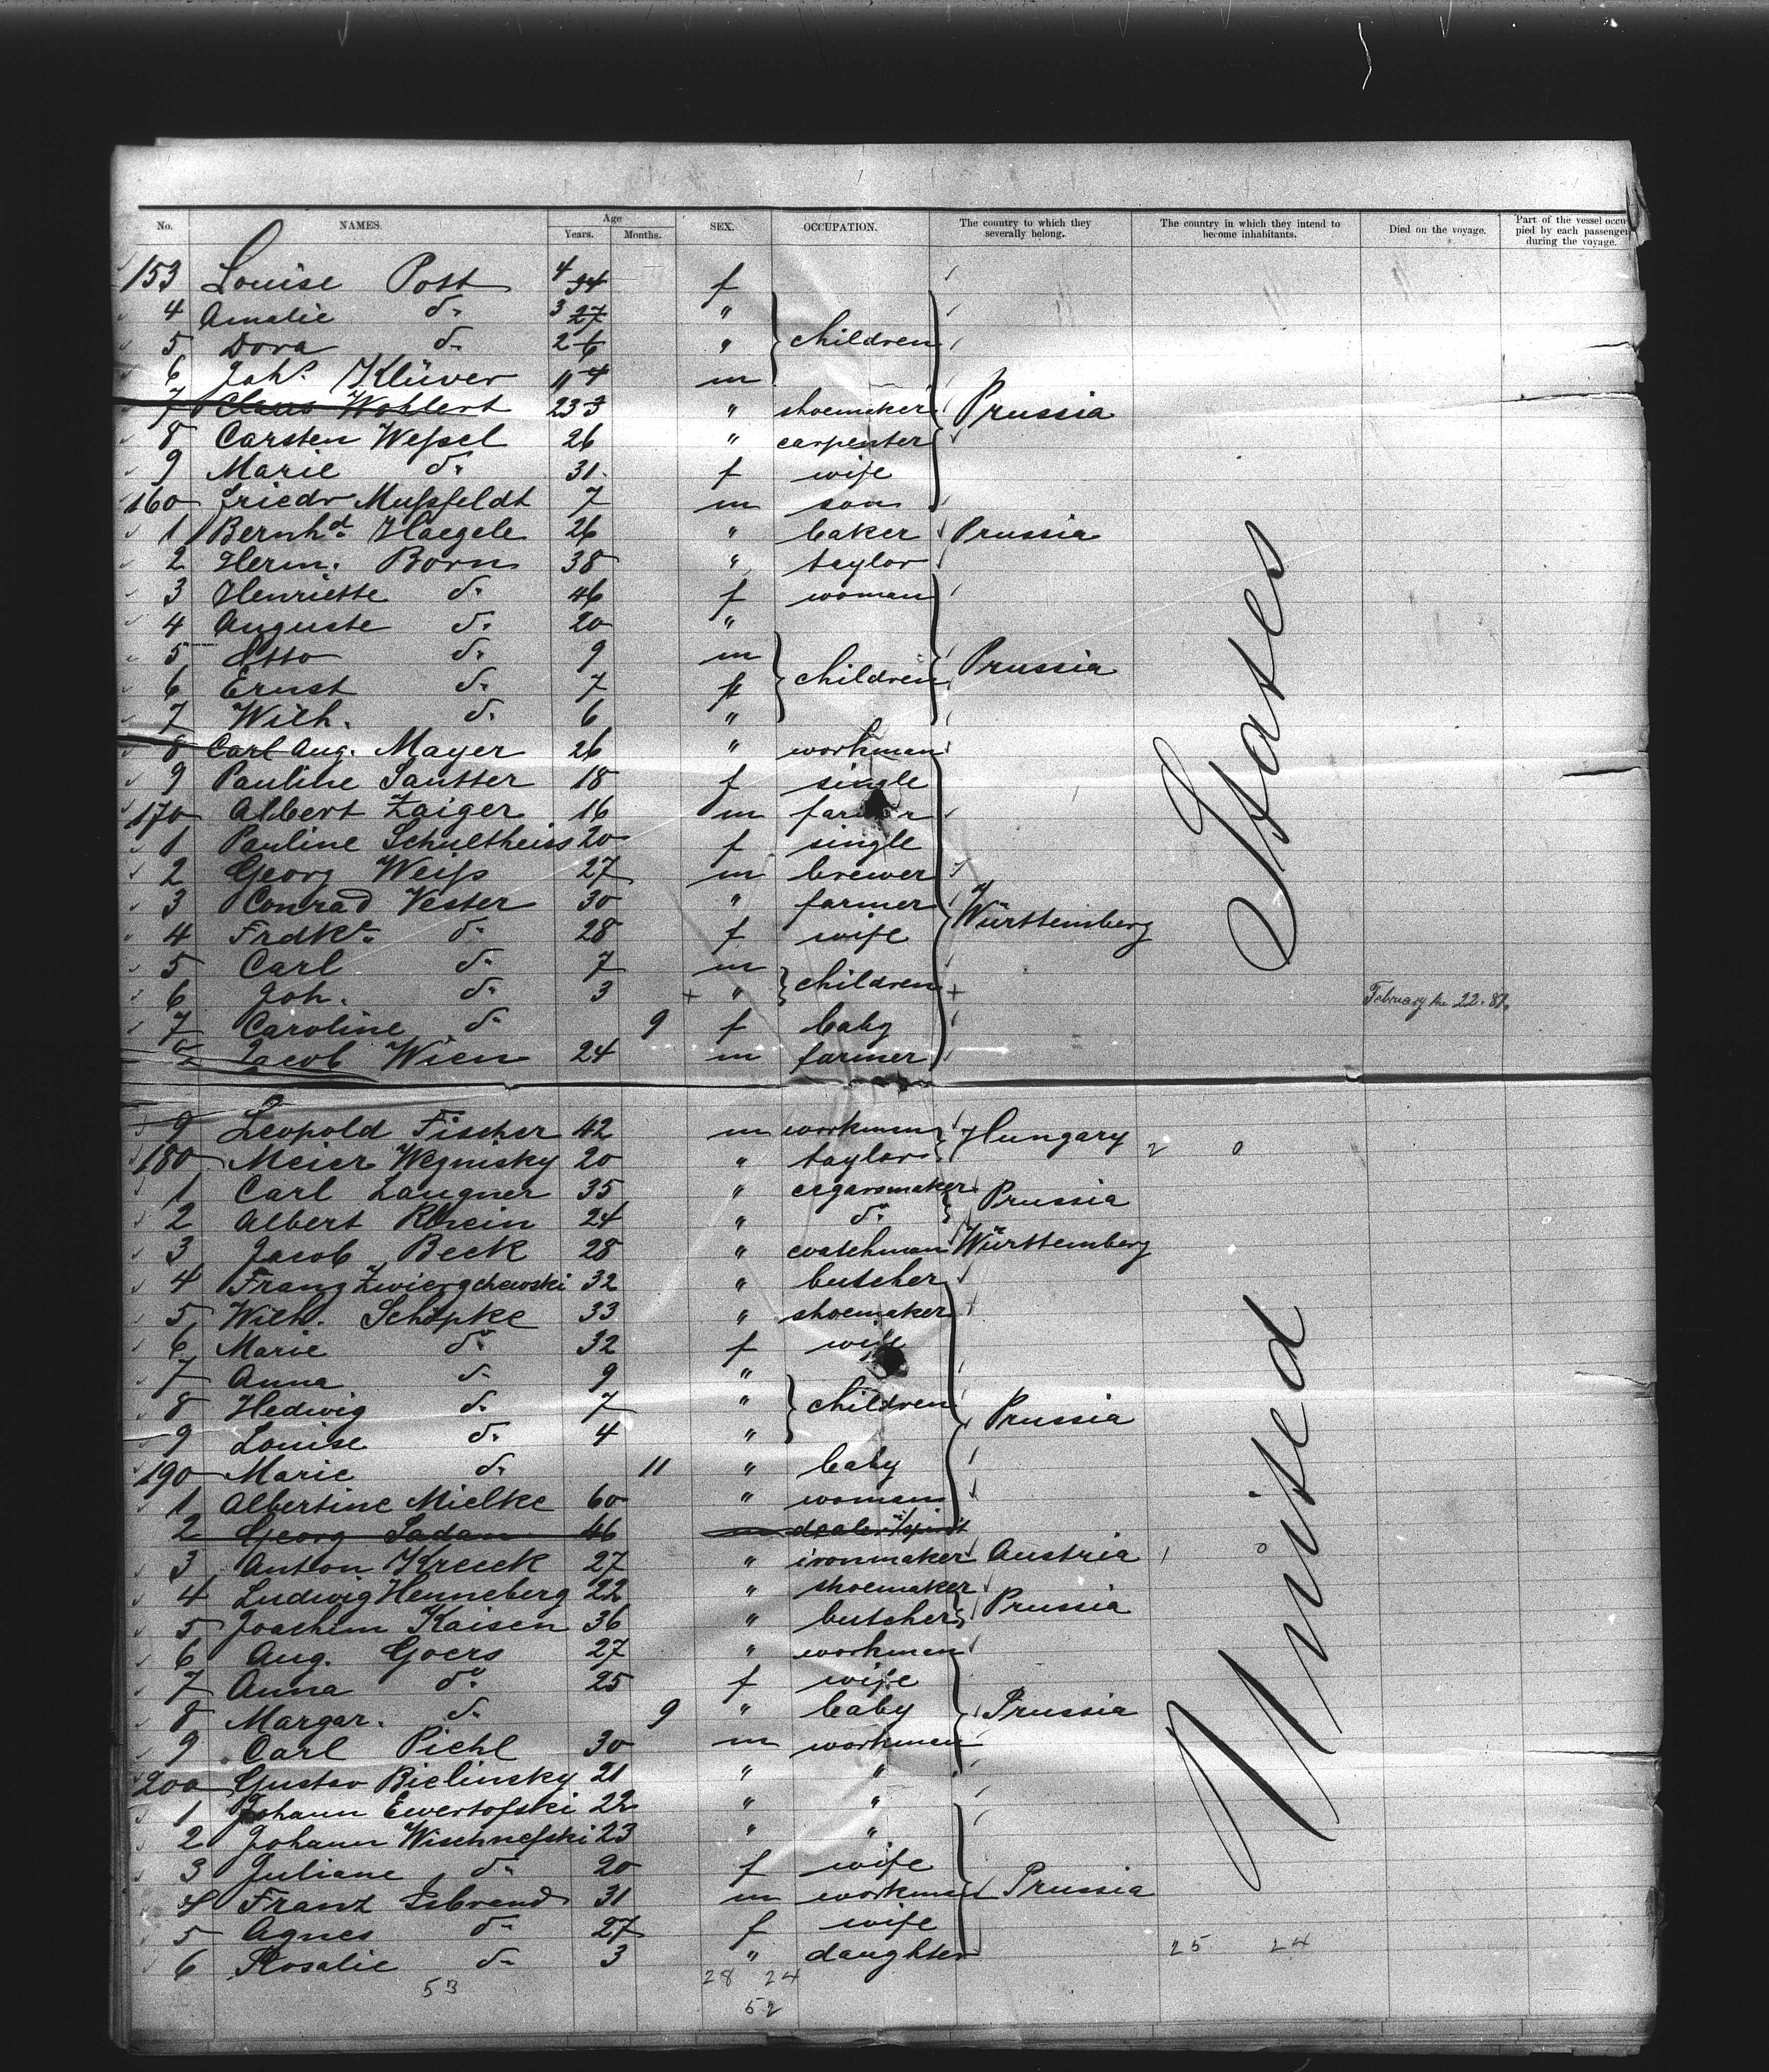 No. NAMES. Age Years. Months. SEX. OCCUPATION. The country to which they severally belong. The country in which they intend to become inhabitants. Died on the voyage. Part of the vessel occupied by each passenger during the voyage.
153 Louise Post 4 34 f
4 Amalie do. 3 27 "
5 Dora do. 2 6 " children
6 Johs. Klüver 11 4 m
7 Claus Wohlert 23 3 " shoemaker Prussia
8 Carsten Weßel 26 " carpenter
9 Marie do. 31 f wife
160 Friedr Mußfeldt 7 m son
1 Bernhd. Haegele 26 " baker Prussia
2 Herm. Born 38 " taylor
3 Henriette do. 46 f woman
4 Auguste do. 20 "
5 Otto do. 9 m
6 Ernst do. 7 children Prussia
7 Wilh. do. 6 "
8 Carl Aug. Mayer 26 " workman
9 Pauline Sautter 18 f single
170 Albert Zaiger 16 m farmer
1 Pauline Schultheiss 20 f single
2 Georg Weiß 27 m brewer
3 Conrad Vester 30 " farmer Württemberg
4 Frdke. do. 28 f wife
5 Carl do. 7 m
6 Joh. do. 3 + " children + February the 22. 87.
7 Caroline do. 9 f baby
8 Jacob Wien 24 m farmer
9 Leopold Fischer 42 m workman Hungary 2 0
180 Meier Wegnisky 20 " taylor
1 Carl Laugner 35 " cegarsmaker Prussia
2 Albert Rhein 24 " do.
3 Jacob Beck 28 " coatchman Württemberg
4 Franz Zwiergchewski 32 " butcher
5 Wilh. Schöpke 33 " shoemaker
6 Marie do. 32 f wife
7 Anna do. 9 "
8 Hedwig do. 7 " children Prussia
9 Louise do. 4 "
190 Marie do. 11 " baby
1 Albertine Mielke 60 " woman
2 Georg Sadam 46 m dealer spirit
3 Anton Kreick 27 " ironmaker Austria 1 0
4 Ludwig Henneberg 22 " shoemaker Prussia
5 Joachim Kaisen 36 " butcher
6 Aug. Goers 27 " workman
7 Anna do. 25 f wife
8 Margar. do. 9 " baby Prussia
9 Carl Piehl 30 m workman
200 Gustav Bielinsky 21 " "
1 Johann Ewertofski 22 " "
2 Johann Wischneßki 23 " "
3 Juliane do. 20 f wife
4 Franz Isbrend 31 m workman Prussia
5 Agnes do. 27 f wife
6 Rosalie do. 3 " daughter
25 24
53 28 24
52
United States